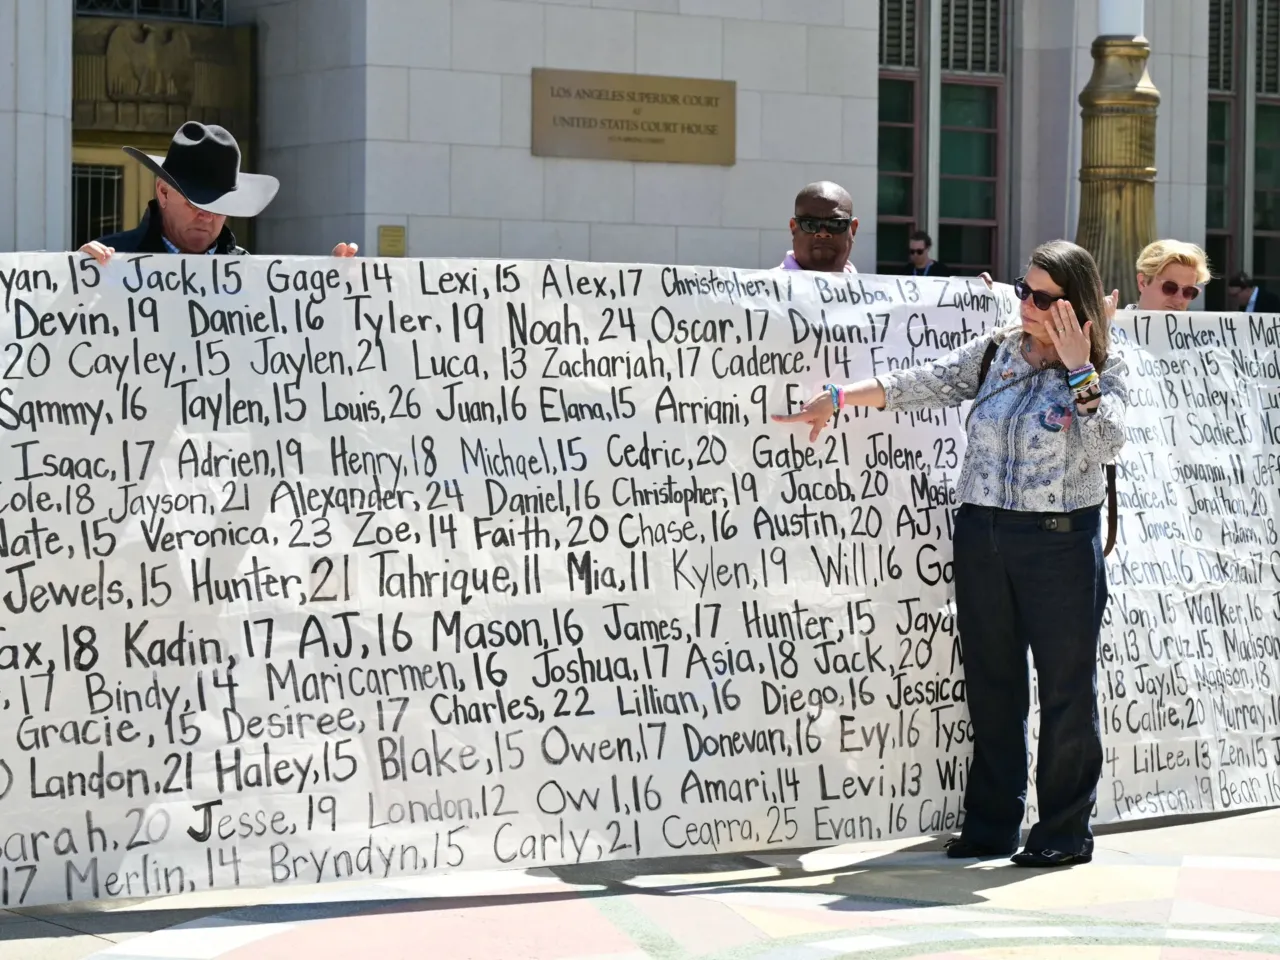 LOS ANGELES SUPERIOR COURT
AT
UNITED STATES COURT HOUSE
yan, 15 Jack, 15 Gage, 14 Lexi, 15 Alex, 17 Christopher, 17 Bubba, 13 Zachary
Devin, 19 Daniel, 16 Tyler, 19 Noah, 24 Oscar, 17 Dylan, 17 17 Parker, 14
20 Cayley, 15 Jaylen, 21 Luca, 13 Zachariah, 17 Cadence, 14 Jasper, 15 Nichol
Sammy, 16 Taylen, 15 Louis, 26 Juan, 16 Elana, 15 Arriani, 9 18 Haley, 1
Isaac, 17 Adrien, 19 Henry, 18 Michael, 15 Cedric, 20 Gabe, 21 Jolene, 23 ames, 17 Sadie, 15
Cole, 18 Jayson, 21 Alexander, 24 Daniel, 16 Christopher, 19 Jacob, 20 17 Giovanni, 11 Jeff
Nate, 15 Veronica, 23 Zoe, 14 Faith, 20 Chase, 16 Austin, 20 AJ, 1 15 Jonathan, 20
Jewels, 15 Hunter, 21 Tahrique, 11 Mia, 11 Kylen, 19 Will, 16 James, 16 Adam, 18
ckenna, 16 Dakota, 17
ax, 18 Kadin, 17 AJ, 16 Mason, 16 James, 17 Hunter, 15 Von, 15 Walker, 16
, 17 Bindy, 14 Maricarmen, 16 Joshua, 17 Asia, 18 Jack, 20 13 Cruz, 15 Madison
Gracie, 15 Desiree, 17 Charles, 22 Lillian, 16 Diego, 16 Jessica 18 Jay, 15 Madison, 18
Landon, 21 Haley, 15 Blake, 15 Owen, 17 Donevan, 16 Evy, 16 Tyso 16 Callie, 20 Murray, 1
Sarah, 20 Jesse, 19 London, 12 Owl, 16 Amari, 14 Levi, 13 Wil 4 LilLee, 13 Zen, 15 J
17 Merlin, 14 Bryndyn, 15 Carly, 21 Cearra, 25 Evan, 16 Caleb Preston, 19 Bear, 16